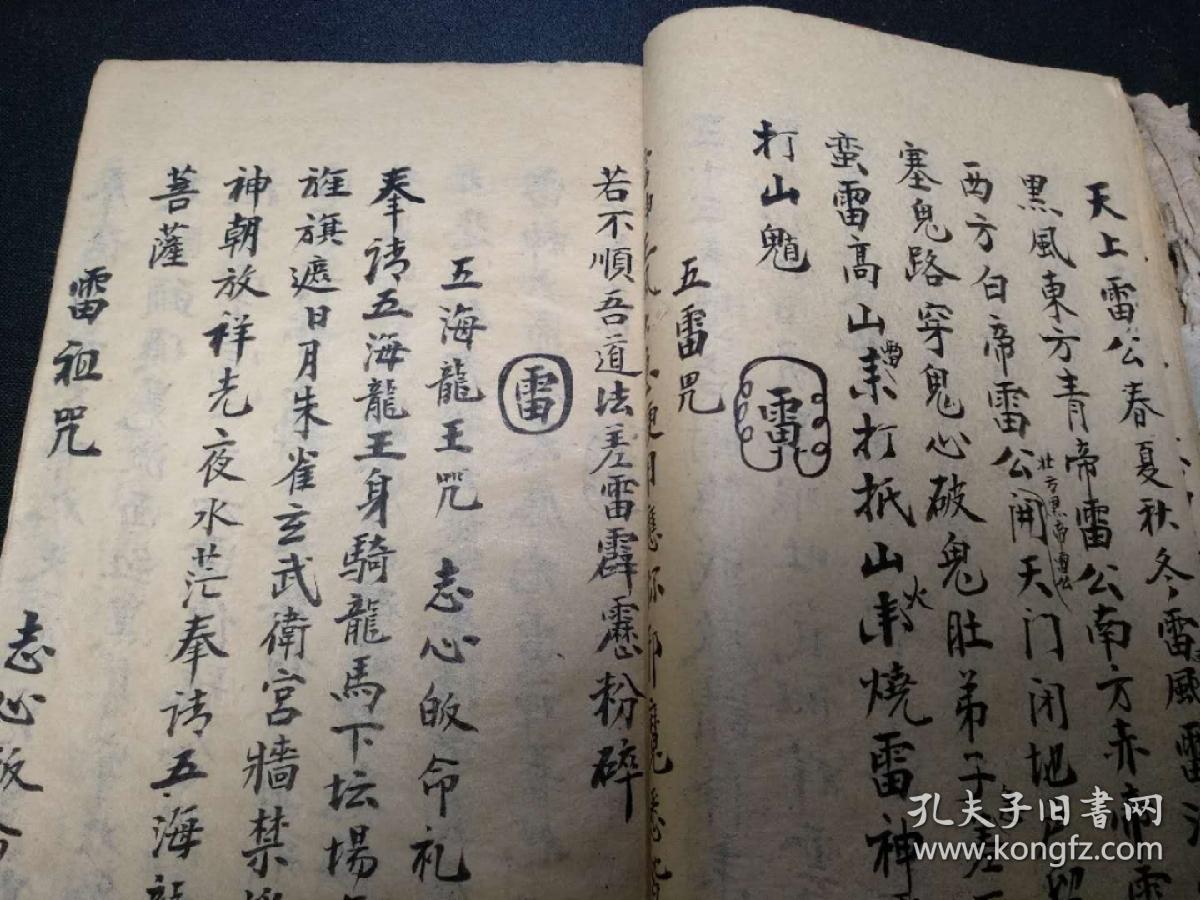 天上雷公春夏秋冬雷風雷
黑風東方青帝雷公南方赤帝雷
北方黑帝雷公
西方白帝雷公開天门闭地户
塞鬼路穿鬼心破鬼肚弟子差
蛮雷高山来打抵山来燒雷神
雷
火
打山魈
五雷咒
雷
若不順吾道法差雷霹靂粉碎
雷
五海龍王咒 志心皈命礼
奉請五海龍王身騎龍馬下坛場
旌旗遮日月朱雀玄武衛宮牆禁
神朝放祥光夜水茫奉請五海龍
菩薩
雷祖咒
志心皈命
孔夫子旧书网
www.kongfz.com